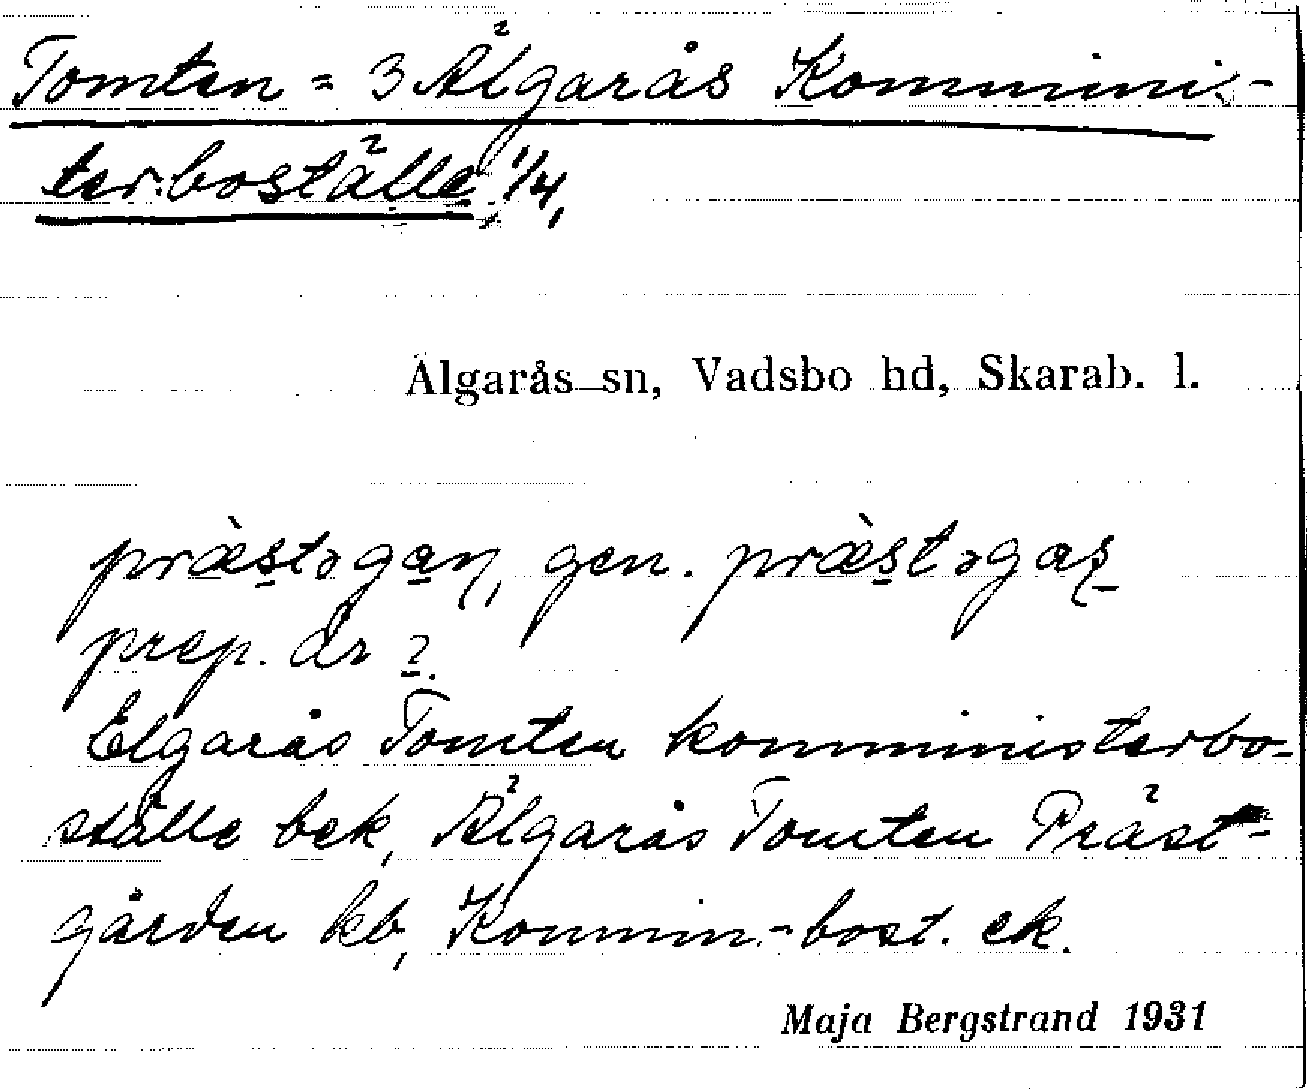 Tomten = 3 Älgarås Kommini-
terboställe 1/4,
Älgarås sn, Vadsbo hd, Skarab. l.
præ̀stəgan, gen. præ̀stəgas
prep. år ?.
Elgarås Tomten komministerbo-
ställe bek, Älgarås Tomten Präst-
gården kb, Kommin.-bost. ek.
Maja Bergstrand 1931